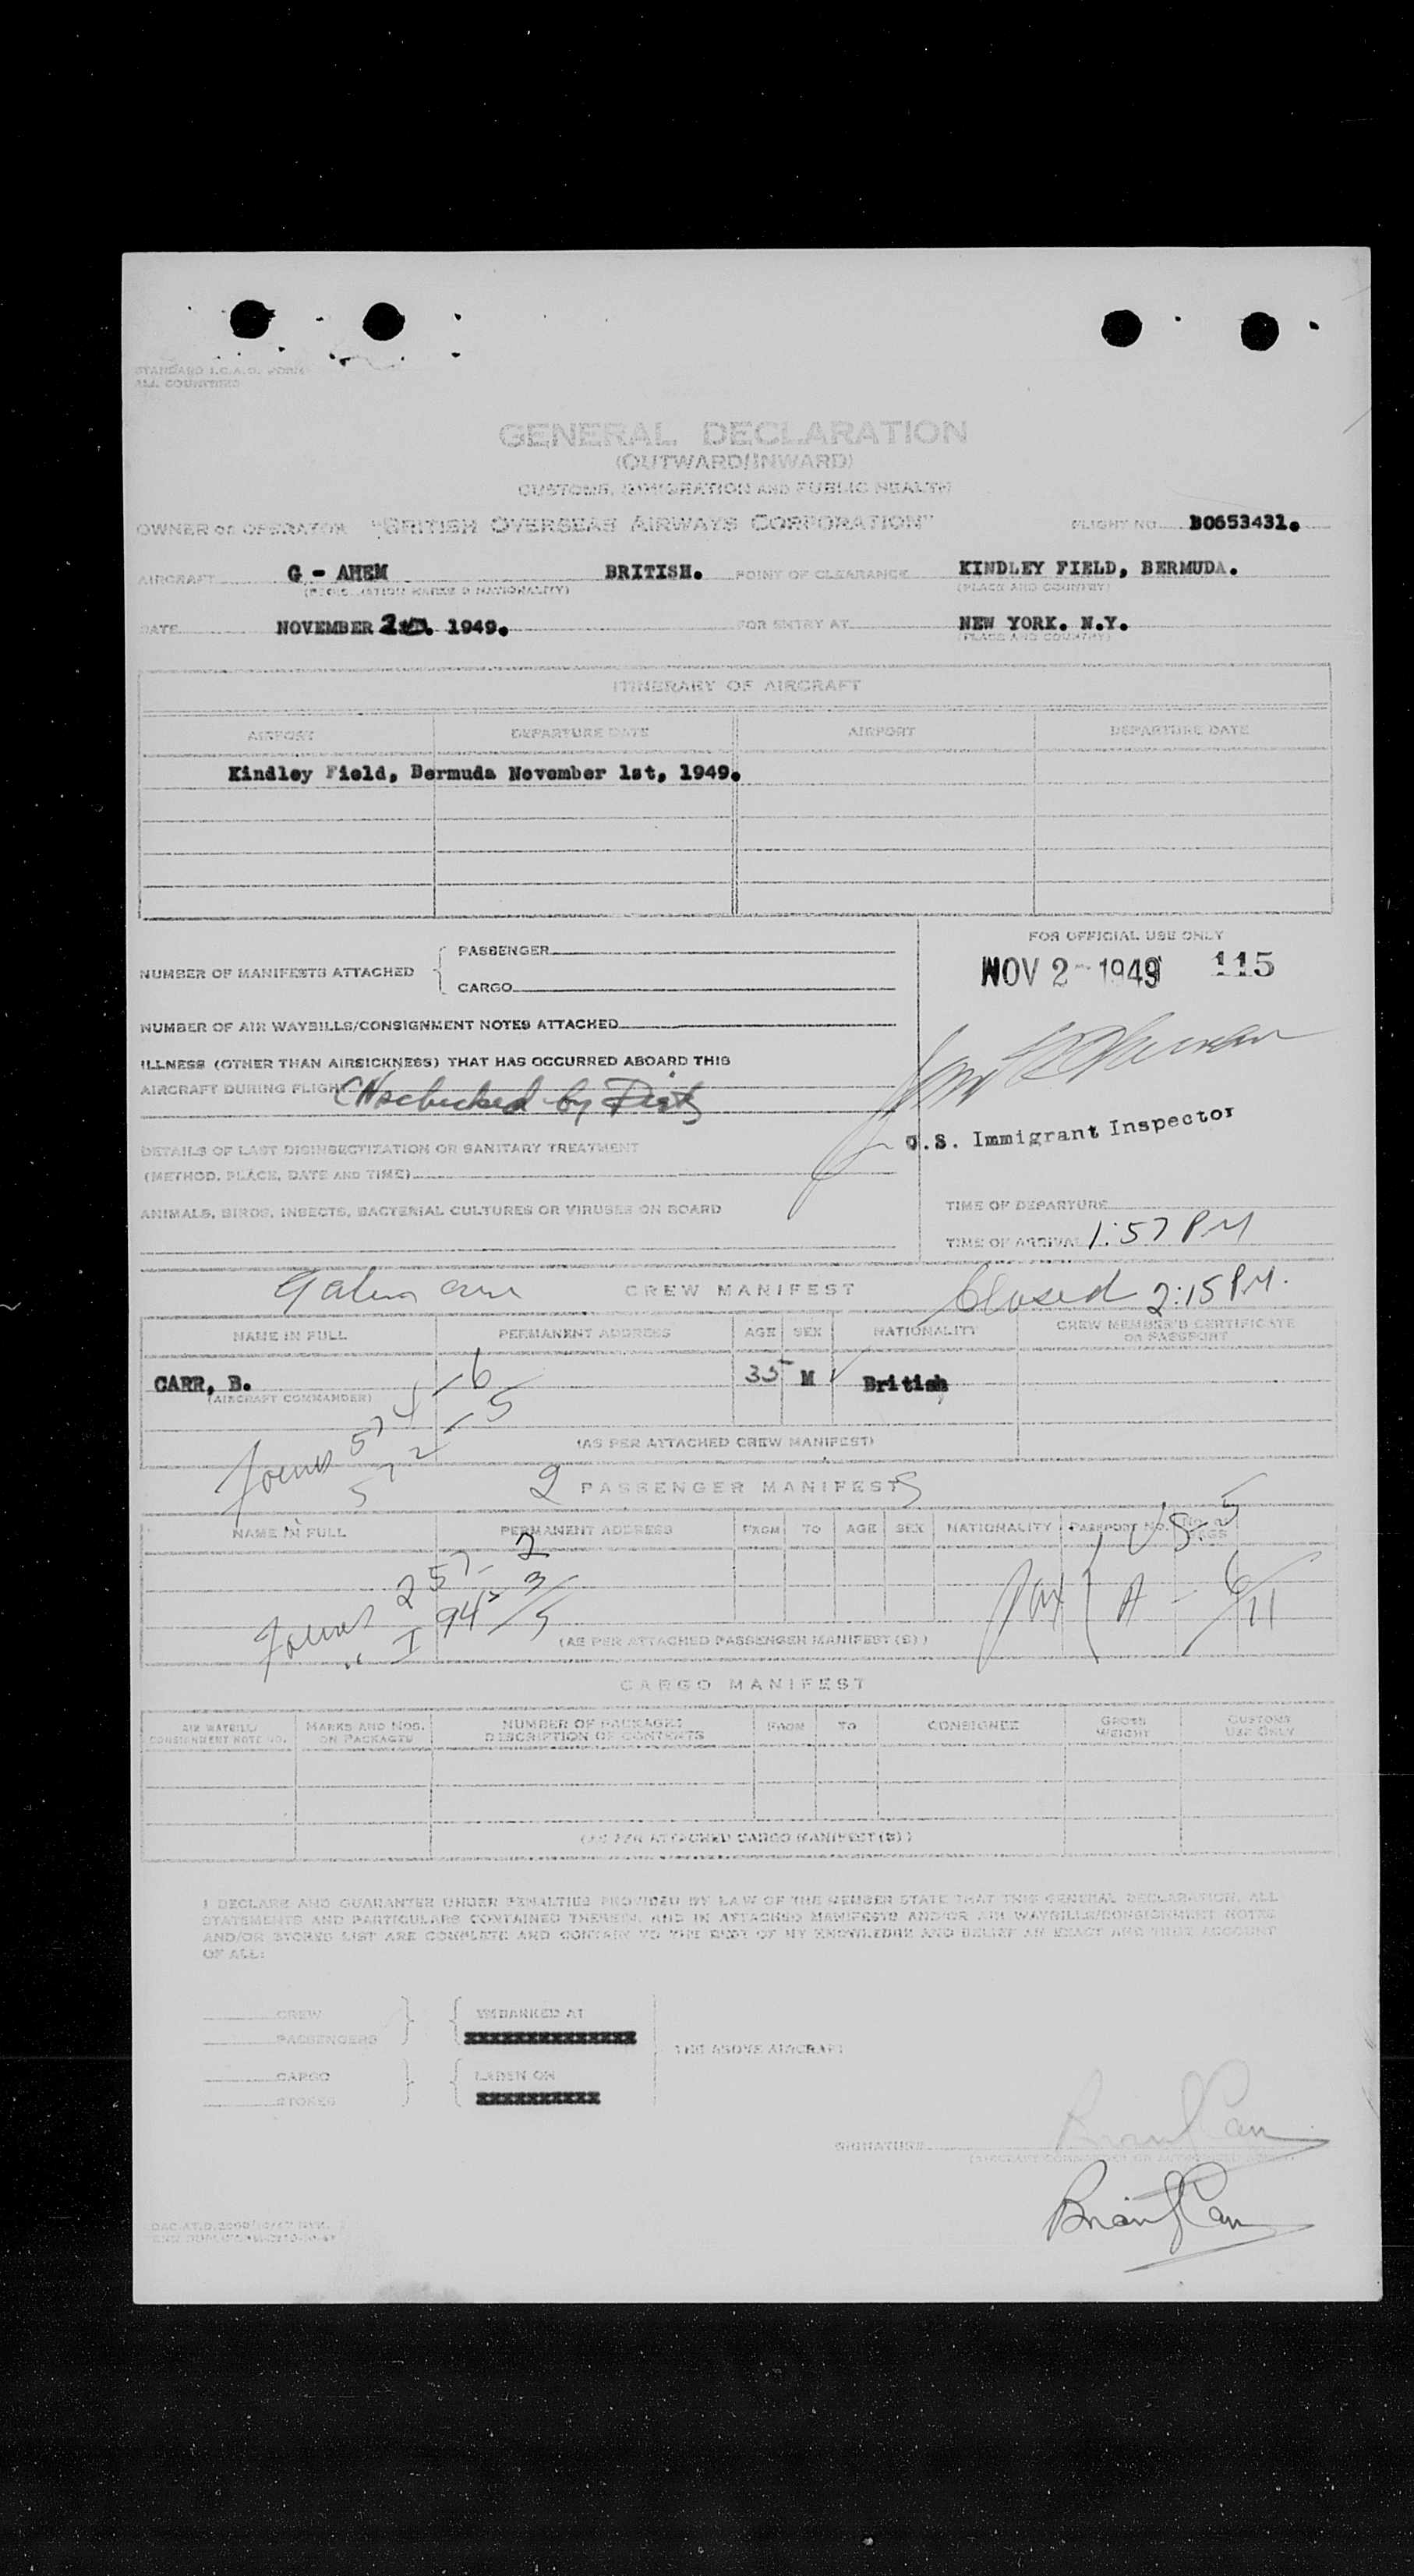 STANDARD I.C.A.O. FORM
ALL COUNTRIES
GENERAL DECLARATION
(OUTWARD/INWARD)
CUSTOMS, IMMIGRATION AND PUBLIC HEALTH
OWNER OR OPERATOR "BRITISH OVERSEAS AIRWAYS CORPORATION" FLIGHT NO. BO653431.
AIRCRAFT G - AHEM BRITISH. POINT OF CLEARANCE KINDLEY FIELD, BERMUDA.
(REGISTRATION MARKS & NATIONALITY) (PLACE AND COUNTRY)
DATE NOVEMBER 1949. FOR ENTRY AT NEW YORK. N.Y.
(PLACE AND COUNTRY)
ITINERARY OF AIRCRAFT
AIRPORT DEPARTURE DATE AIRPORT DEPARTURE DATE
Kindley Field, Bermuda November 1st, 1949.
FOR OFFICIAL USE ONLY
NUMBER OF MANIFESTS ATTACHED { PASSENGER
CARGO
NOV 2 - 1949 115
NUMBER OF AIR WAYBILLS/CONSIGNMENT NOTES ATTACHED
ILLNESS (OTHER THAN AIRSICKNESS) THAT HAS OCCURRED ABOARD THIS
AIRCRAFT DURING FLIGHT checked by
U.S. Immigrant Inspector
DETAILS OF LAST DISINSECTIZATION OR SANITARY TREATMENT
(METHOD, PLACE, DATE AND TIME)
ANIMALS, BIRDS, INSECTS, BACTERIAL CULTURES OR VIRUSES ON BOARD
TIME OF DEPARTURE
TIME OF ARRIVAL 1:57 PM
CREW MANIFEST Closed 2:15 PM.
NAME IN FULL PERMANENT ADDRESS AGE SEX NATIONALITY CREW MEMBER'S CERTIFICATE
OR PASSPORT
CARR, B. 35 M British
(AIRCRAFT COMMANDER)
(AS PER ATTACHED CREW MANIFEST)
2 PASSENGER MANIFESTS
NAME IN FULL PERMANENT ADDRESS FROM TO AGE SEX NATIONALITY PASSPORT NO. NO. OF BAGS
US - 5
257 - 2
A - 6
945 3
5 11
(AS PER ATTACHED PASSENGER MANIFEST(S))
CARGO MANIFEST
AIR WAYBILL/
CONSIGNMENT NOTE NO. MARKS AND NOS.
ON PACKAGES NUMBER OF PACKAGES
DESCRIPTION OF CONTENTS FROM TO CONSIGNEE GROSS
WEIGHT CUSTOMS
USE ONLY
(AS PER ATTACHED CARGO MANIFEST(S))
I DECLARE AND GUARANTEE UNDER PENALTIES PROVIDED BY LAW OF THE MEMBER STATE THAT THIS GENERAL DECLARATION, ALL
STATEMENTS AND PARTICULARS CONTAINED THEREIN, AND IN ATTACHED MANIFESTS AND/OR AIR WAYBILLS/CONSIGNMENT NOTES
AND/OR STORES LIST ARE COMPLETE AND CONTAIN TO THE BEST OF MY KNOWLEDGE AND BELIEF AN EXACT AND TRUE ACCOUNT
OF ALL:
CREW EMBARKED AT
PASSENGERS XXXXXXXXXXXXXX
THE ABOVE AIRCRAFT
CARGO LADEN ON
STORES XXXXXXXXXX
SIGNATURE Brian J Carr
Brian J Carr